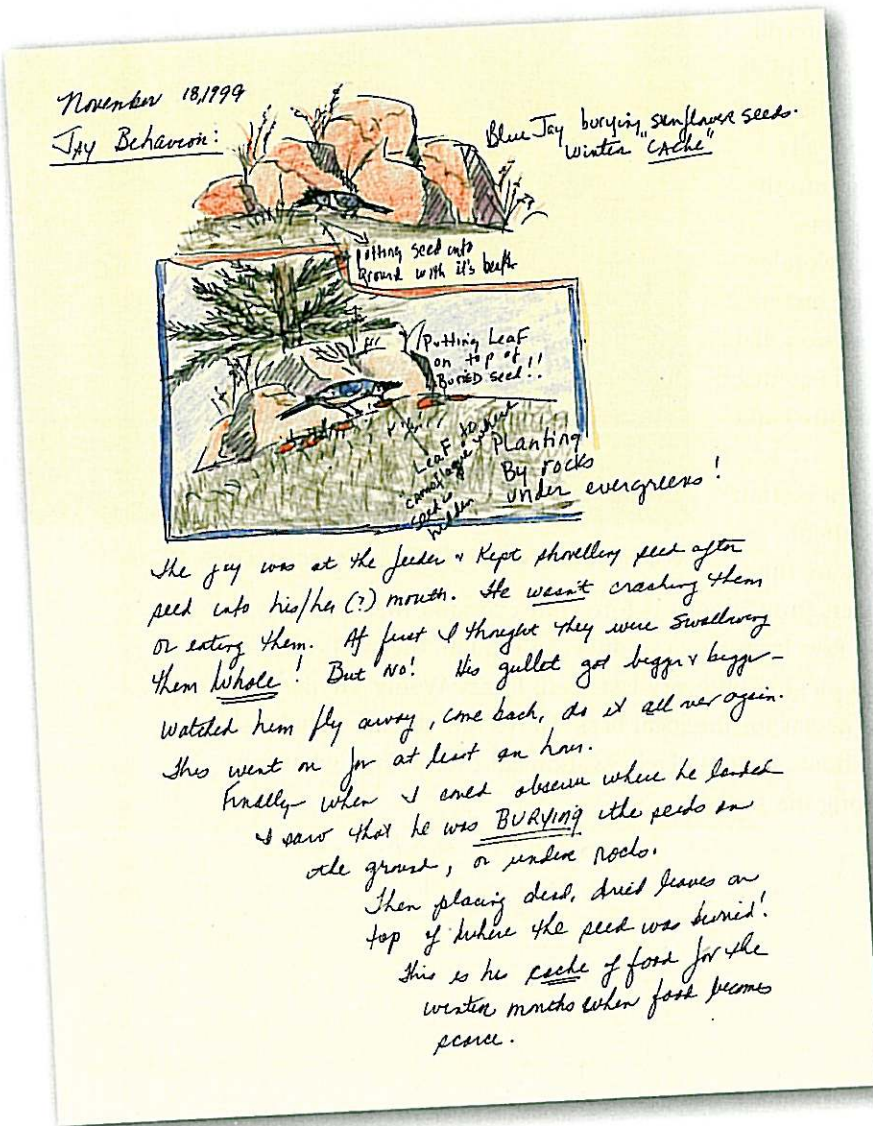 November 18, 1999
Jay Behavior:
Blue Jay burying sunflower seeds.
Winter "CAche"
putting seed into
ground with it's beak
Putting Leaf
on top of
BURIED seed!!
Leaf to
"camoflague" where
seed is
hidden
Planting
By rocks
under evergreens!
The jay was at the feeder & kept shovelling seed after
seed into his/her (?) mouth. He wasn't crashing them
or eating them. At first I thought they were swallowing
them whole! But NO! His gullet got bigger & bigger-
Watched him fly away, come back, do it all over again.
This went on for at least an hour.
Finally- when I could observe where he landed
I saw that he was BURYING the seeds in
the ground, or under rocks.
Then placing dead, dried leaves on
top of where the seed was buried!
This is his cache of food for the
winter months when food becomes
scarce.